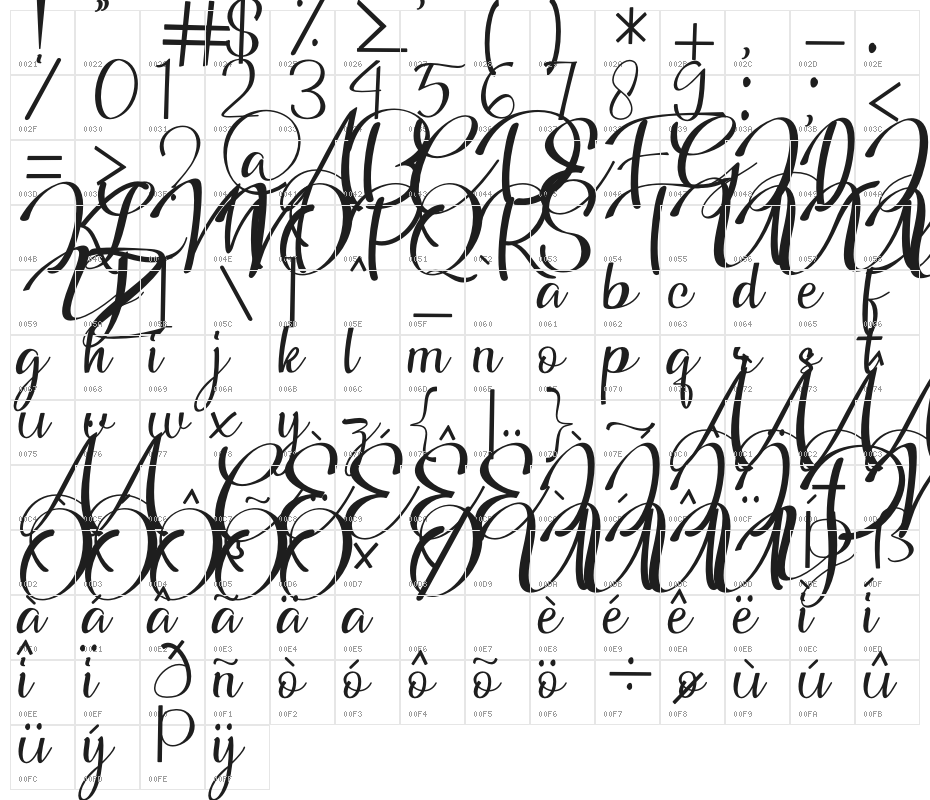 ! " # $ % ≥ ' ( ) * + , - .
0021 0022 0023 0024 0025 0026 0027 0028 0029 002A 002B 002C 002D 002E
/ 0 1 2 3 4 5 6 7 8 9 : ; <
002F 0030 0031 0032 0033 0034 0035 0036 0037 0038 0039 003A 003B 003C
= > ? @ A B C D E F G H I J
003D 003E 003F 0040 0041 0042 0043 0044 0045 0046 0047 0048 0049 004A
K L M N O P Q R S T U V W X
004B 004C 004D 004E 004F 0050 0051 0052 0053 0054 0055 0056 0057 0058
Y Z [ \ ] ^ _ a b c d e f
0059 005A 005B 005C 005D 005E 005F 0060 0061 0062 0063 0064 0065 0066
g h i j k l m n o p q r s t
0067 0068 0069 006A 006B 006C 006D 006E 006F 0070 0071 0072 0073 0074
u v w x y z { | } ~ À Á Â Ã
0075 0076 0077 0078 0079 007A 007B 007C 007D 007E 00C0 00C1 00C2 00C3
Ä Å Ç È É Ê Ë Ì Í Î Ï Ð Ñ
00C4 00C5 00C6 00C7 00C8 00C9 00CA 00CB 00CC 00CD 00CE 00CF 00D0 00D1
Ò Ó Ô Õ Ö × Ø Ù Ú Û Ü Ý Þ ß
00D2 00D3 00D4 00D5 00D6 00D7 00D8 00D9 00DA 00DB 00DC 00DD 00DE 00DF
à á â ã ä a è é ê ë ì í
00E0 00E1 00E2 00E3 00E4 00E5 00E6 00E7 00E8 00E9 00EA 00EB 00EC 00ED
î ï ð ñ ò ó ô õ ö ÷ ø ù ú û
00EE 00EF 00F0 00F1 00F2 00F3 00F4 00F5 00F6 00F7 00F8 00F9 00FA 00FB
ü ý þ ÿ
00FC 00FD 00FE 00FF